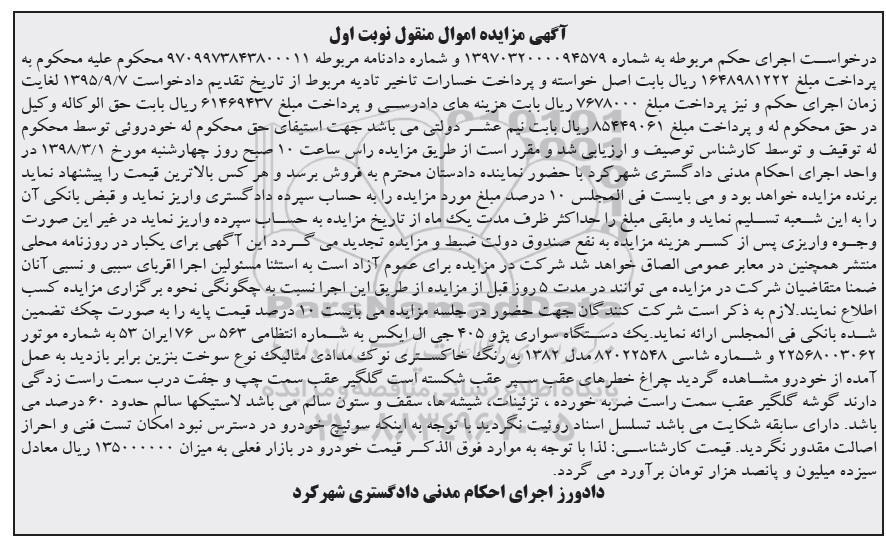 آگهی مزایده اموال منقول نوبت اول
درخواست اجرای حکم مربوطه به شماره ۱۳۹۷۰۳۲۰۰۰۰۹۴۵۷۹ و شماره دادنامه مربوطه ۹۷۰۹۹۷۳۸۴۳۸۰۰۰۱۱ محکوم علیه محکوم به
پرداخت مبلغ ۱۶۴۸۹۸۱۲۲۲ ریال بابت اصل خواسته و پرداخت خسارات تاخیر تادیه مربوط از تاریخ تقدیم دادخواست ۱۳۹۵/۹/۷ لغایت
زمان اجرای حکم و نیز پرداخت مبلغ ۷۶۷۸۰۰۰ ریال بابت هزینه های دادرسی و پرداخت مبلغ ۶۱۴۶۹۴۳۷ ریال بابت حق الوکاله وکیل
در حق محکوم له و پرداخت مبلغ ۸۵۴۴۹۰۶۱ ریال بابت نیم عشر دولتی می باشد جهت استیفای حق محکوم له خودروئی توسط محکوم
له توقیف و توسط کارشناس توصیف و ارزیابی شد و مقرر است از طریق مزایده راس ساعت ۱۰ صبح روز چهارشنبه مورخ ۱۳۹۸/۳/۱ در
واحد اجرای احکام مدنی دادگستری شهرکرد با حضور نماینده دادستان محترم به فروش برسد و هر کس بالاترین قیمت را پیشنهاد نماید
برنده مزایده خواهد بود و می بایست فی المجلس ۱۰ درصد مبلغ مورد مزایده را به حساب سپرده دادگستری واریز نماید و قبض بانکی آن
را به این شعبه تسلیم نماید و مابقی مبلغ را حداکثر ظرف مدت یک ماه از تاریخ مزایده به حساب سپرده واریز نماید در غیر این صورت
وجوه واریزی پس از کسر هزینه مزایده به نفع صندوق دولت ضبط و مزایده تجدید می گردد این آگهی برای یکبار در روزنامه محلی
منتشر همچنین در معابر عمومی الصاق خواهد شد شرکت در مزایده برای عموم آزاد است به استثنا مسئولین اجرا اقربای سببی و نسبی آنان
ضمنا متقاضیان شرکت در مزایده می توانند در مدت ۵ روز قبل از مزایده از طریق این اجرا نسبت به چگونگی نحوه برگزاری مزایده کسب
اطلاع نمایند.لازم به ذکر است شرکت کنندگان جهت حضور در جلسه مزایده می بایست ۱۰ درصد قیمت پایه را به صورت چک تضمین
شده بانکی فی المجلس ارائه نماید.یک دستگاه سواری پژو ۴۰۵ جی ال ایکس به شماره انتظامی ۵۶۳ س ۷۶ ایران ۵۳ به شماره موتور
۲۲۵۶۸۰۰۳۰۶۲ و شماره شاسی ۸۲۰۲۲۵۴۸ مدل ۱۳۸۲ به رنگ خاکستری نوک مدادی متالیک نوع سوخت بنزین برابر بازدید به عمل
آمده از خودرو مشاهده گردید چراغ خطرهای عقب و سپر عقب شکسته است گلگیر عقب سمت چپ و جفت درب سمت راست زدگی
دارند گوشه گلگیر عقب سمت راست ضربه خورده ، تزئینات، شیشه ها، سقف و ستون سالم می باشد لاستیکها سالم حدود ۶۰ درصد می
باشد. دارای سابقه شکایت می باشد تسلسل اسناد روئیت نگردید با توجه به اینکه سوئیچ خودرو در دسترس نبود امکان تست فنی و احراز
اصالت مقدور نگردید. قیمت کارشناسی: لذا با توجه به موارد فوق الذکر قیمت خودرو در بازار فعلی به میزان ۱۳۵۰۰۰۰۰۰ ریال معادل
سیزده میلیون و پانصد هزار تومان برآورد می گردد.
دادورز اجرای احکام مدنی دادگستری شهرکرد
ParsNamadData
پایگاه اطلاع رسانی مناقصه و مزایده
۰۲۱-۸۸۳۴۹۶۷۰-۵